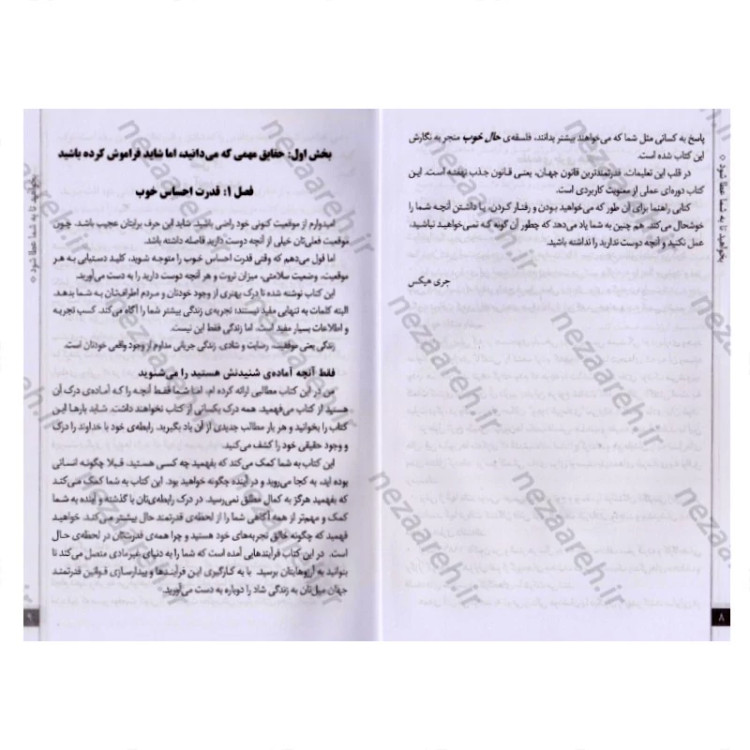 پاسخ به کسانی مثل شما که می‌خواهند بیشتر بدانند، فلسفه‌ی حال خوب منجر به نگارش
این کتاب شده است.
در قلب این تعلیمات، قدرتمندترین قانون جهان، یعنی قانون جذب نهفته است. این
کتاب دوره‌ای عملی از معنویت کاربردی است.
کتابی راهنما برای آن طور که می‌خواهید بودن و رفتار کردن. با داشتن آنچه شما را
خوشحال می‌کند. هم چنین به شما یاد می‌دهد که چطور آن گونه که نمی‌خواهید نباشید.
عمل نکنید و آنچه دوست ندارید را نداشته باشید.
جری هیکس
بخواهید تا به شما عطا شود
۸
بخش اول: حقایق مهمی که می‌دانید، اما شاید فراموش کرده باشید
فصل ۱: قدرت احساس خوب
امیدوارم از موقعیت کنونی خود راضی باشید. شاید این حرف برایتان عجیب باشد. چون
موقعیت فعلی‌تان خیلی از آنچه دوست دارید فاصله داشته باشد.
اما قول می‌دهم که وقتی قدرت احساس خوب را متوجه شوید، کلید دستیابی به هر
موقعیت، وضعیت سلامتی، میزان ثروت و هر آنچه دوست دارید را به دست می‌آورید.
این کتاب نوشته شده تا درک بهتری از وجود خودتان و مردم اطرافتان به شما بدهد.
البته کلمات به تنهایی مفید نیستند؛ تجربه‌ی زندگی بیشتر شما را آگاه می‌کند. کسب تجربه
و اطلاعات بسیار مفید است. اما زندگی فقط این نیست.
زندگی یعنی موفقیت، رضایت و شادی. زندگی جریانی مداوم از وجود واقعی خودتان است.
فقط آنچه آماده‌ی شنیدنش هستید را می‌شنوید
من در این کتاب مطالبی ارائه کرده ام. اما شما فقط آنچه را که آماده‌ی درک آن
هستید از کتاب می‌فهمید. همه درک یکسانی از کتاب نخواهند داشت. شاید بارها این
کتاب را بخوانید و هر بار مطالب جدیدی از آن یاد بگیرید. رابطه‌ی خود با خداوند را درک
و وجود حقیقی خود را کشف می‌کنید.
این کتاب به شما کمک می‌کند که بفهمید چه کسی هستید. قبلا چگونه انسانی
بوده اید، به کجا می‌روید و در آینده چگونه خواهید بود. این کتاب به شما کمک می‌کند
که بفهمید هرگز به کمال مطلق نمی‌رسید. در درک رابطه‌ی‌تان با گذشته و آینده به شما
کمک و مهم‌تر از همه آگاهی شما را از لحظه‌ی قدرتمند حال بیشتر می‌کند. خواهید
فهمید که چگونه خالق تجربه‌های خود هستید و چرا همه‌ی قدرتتان در لحظه‌ی حال
است. در این کتاب فرآیندهایی آمده است که شما را به دنیای غیرمادی متصل می‌کند تا
بتوانید به آرزوهایتان برسید. با به کارگیری این فرآیندها و بیدارسازی قوانین قدرتمند
جهان میل‌تان به زندگی شاد را دوباره به دست می‌آورید.
بخواهید تا به شما عطا شود
۹
nezaareh.ir